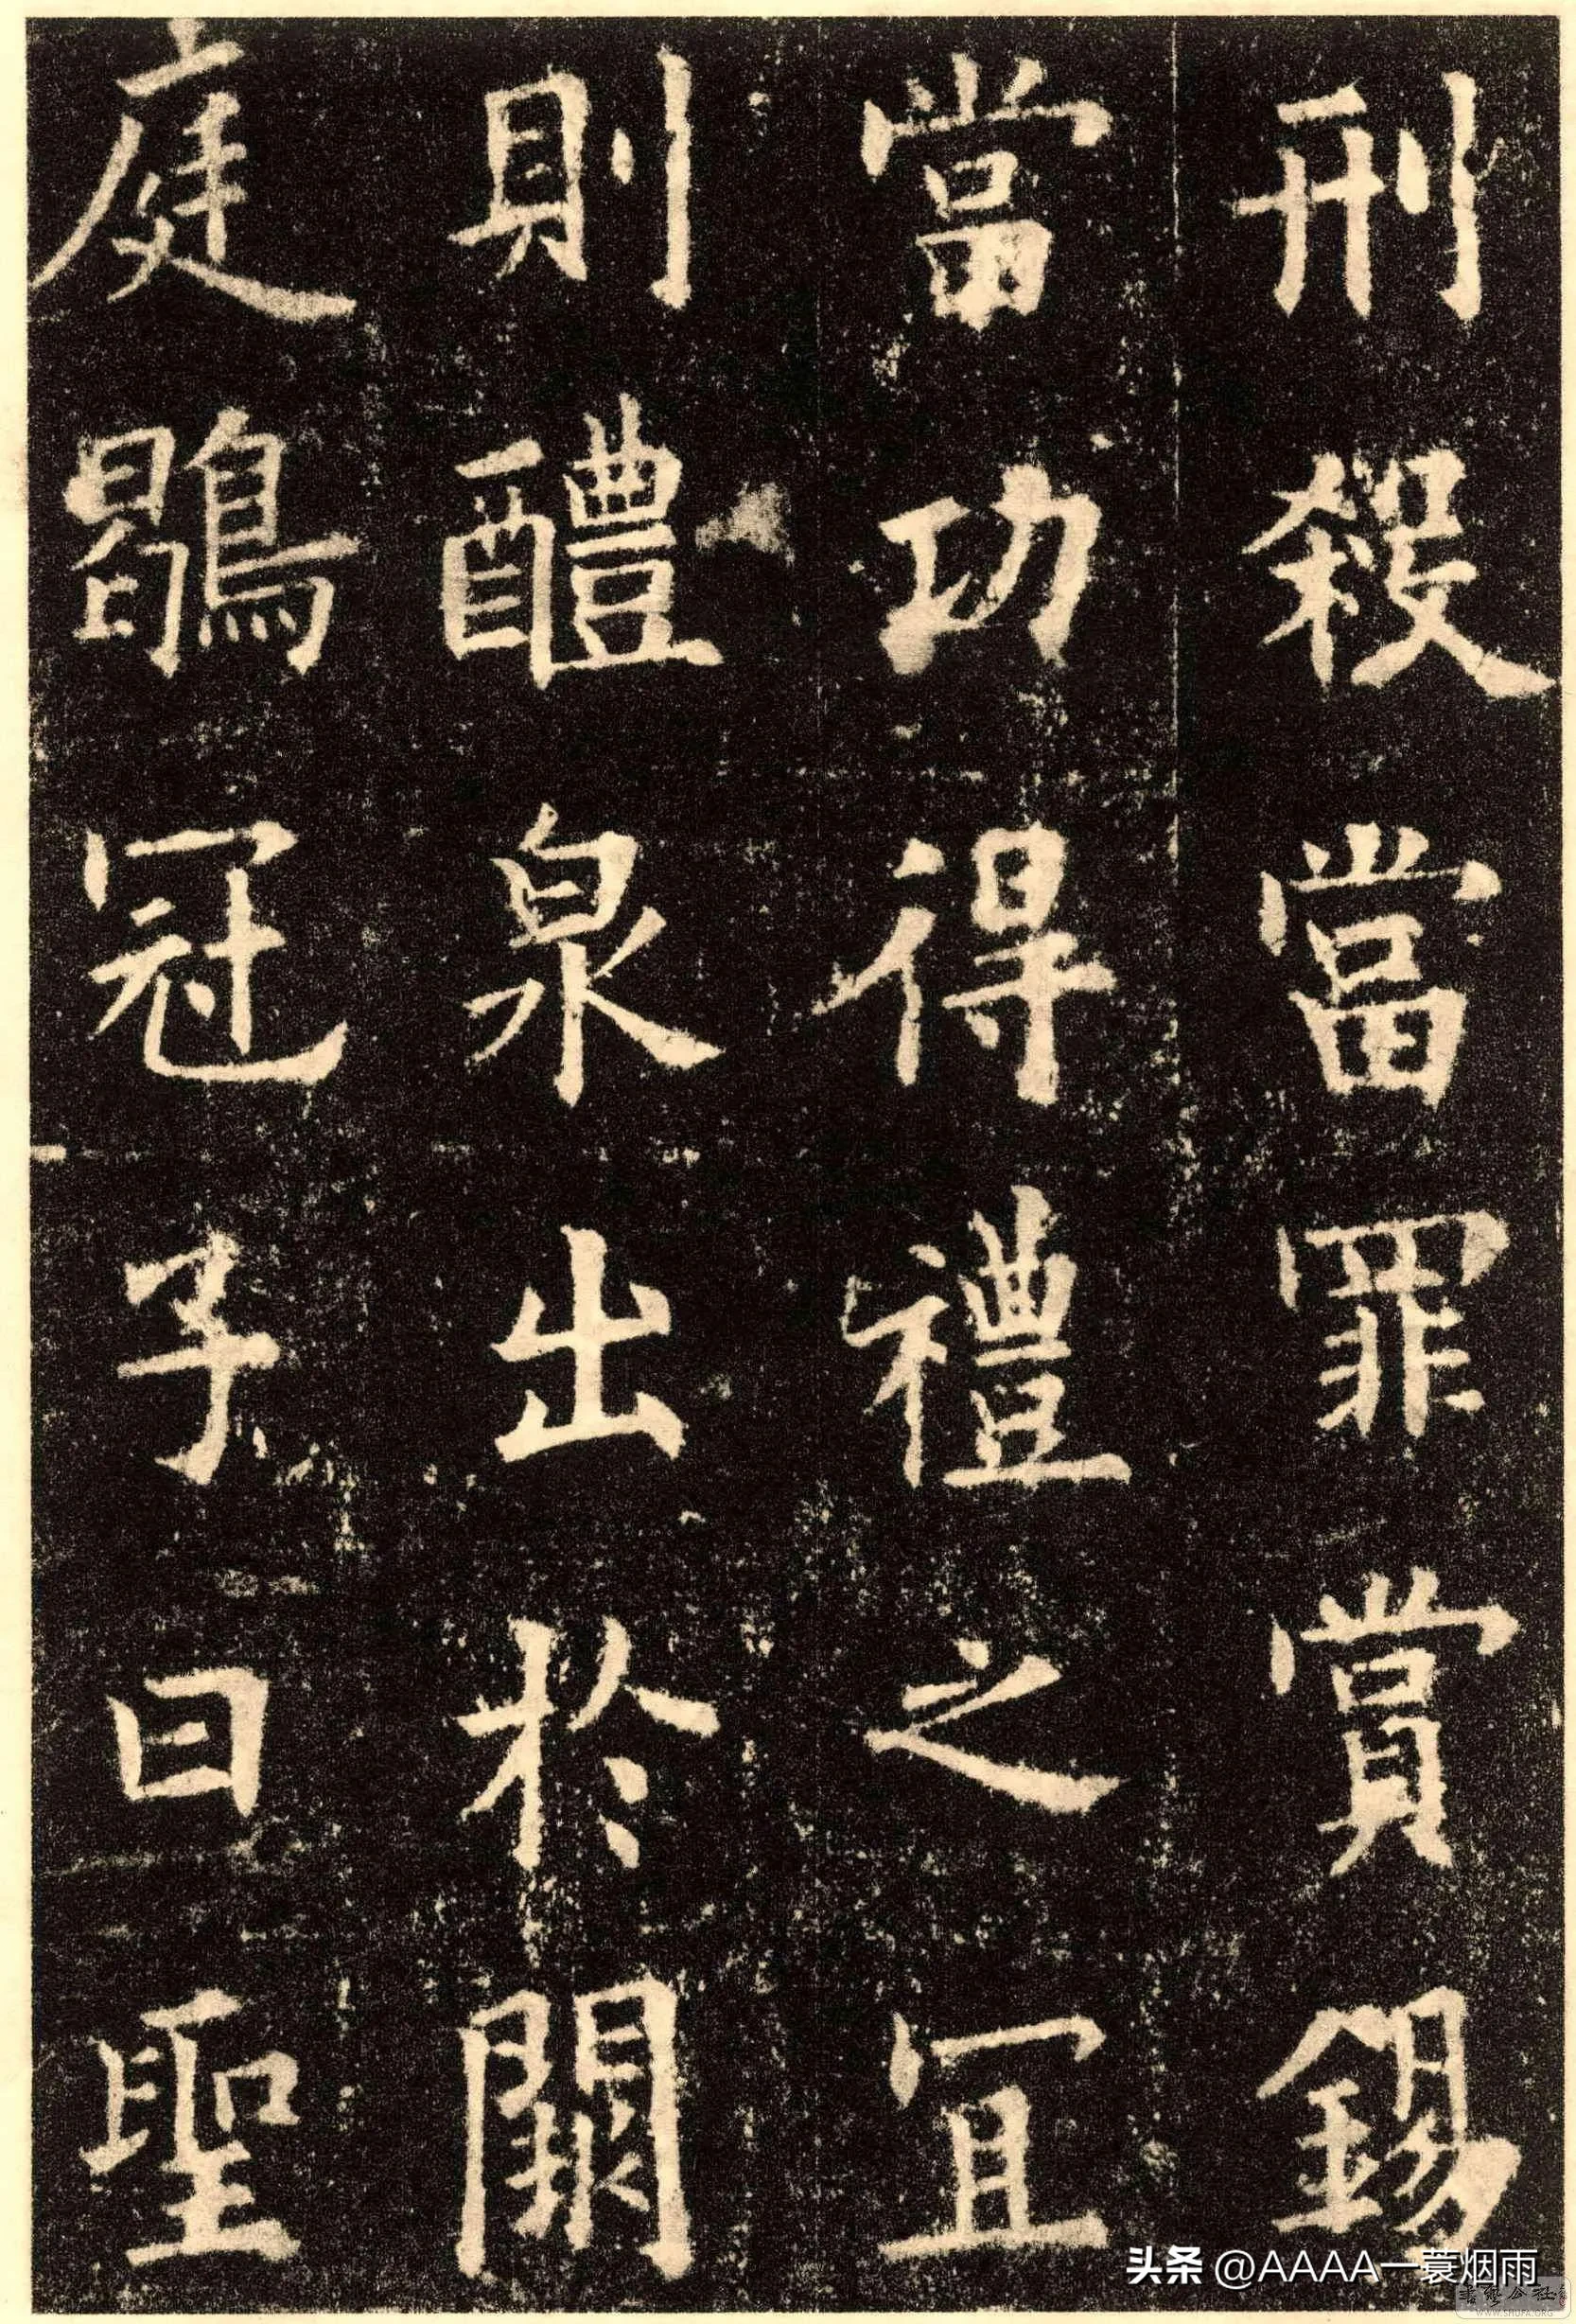 刑殺當罪賞錫
當功得禮之宜
則醴泉出於闕
庭鶡冠子曰聖
头条 @AAAA一蓑烟雨
WWW.SHUFA.ORG